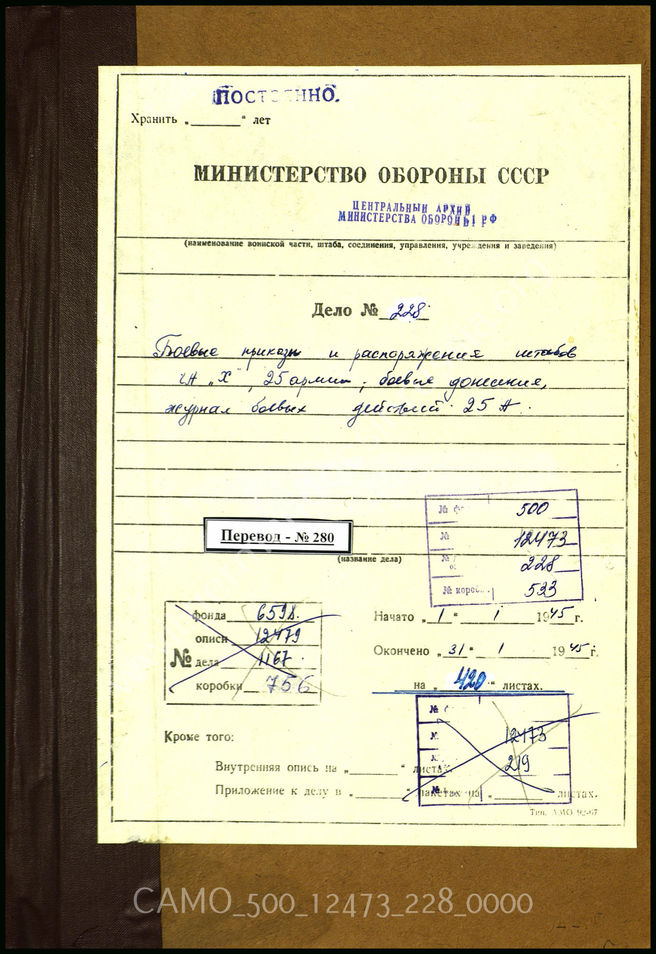 ПОСТОЯННО.
Хранить „ “ лет
МИНИСТЕРСТВО ОБОРОНЫ СССР
ЦЕНТРАЛЬНЫЙ АРХИВ
МИНИСТЕРСТВА ОБОРОНЫ РФ
(наименование воинской части, штаба, соединения, управления, учреждения и заведения)
Дело № 228
Боевые приказы и распоряжения штабов
ГА „Х“, 25 армии, боевые донесения,
журнал боевых действий 25 А.
Перевод - № 280
(название дела)
№ 500
№ 12473
№ 228
№ короб 533
фонда 6598.
описи 12479
№ дела 1167.
коробки 756
Начато „1“ 1 1945 г.
Окончено „31“ 1 1945 г.
на „420“ листах.
№
12473
219
№
Кроме того:
Внутренняя опись на „ “ листах.
Приложение к делу в „ “ пакетах на „ “ листах.
Тип. АМО 92-67
CAMO_500_12473_228_0000